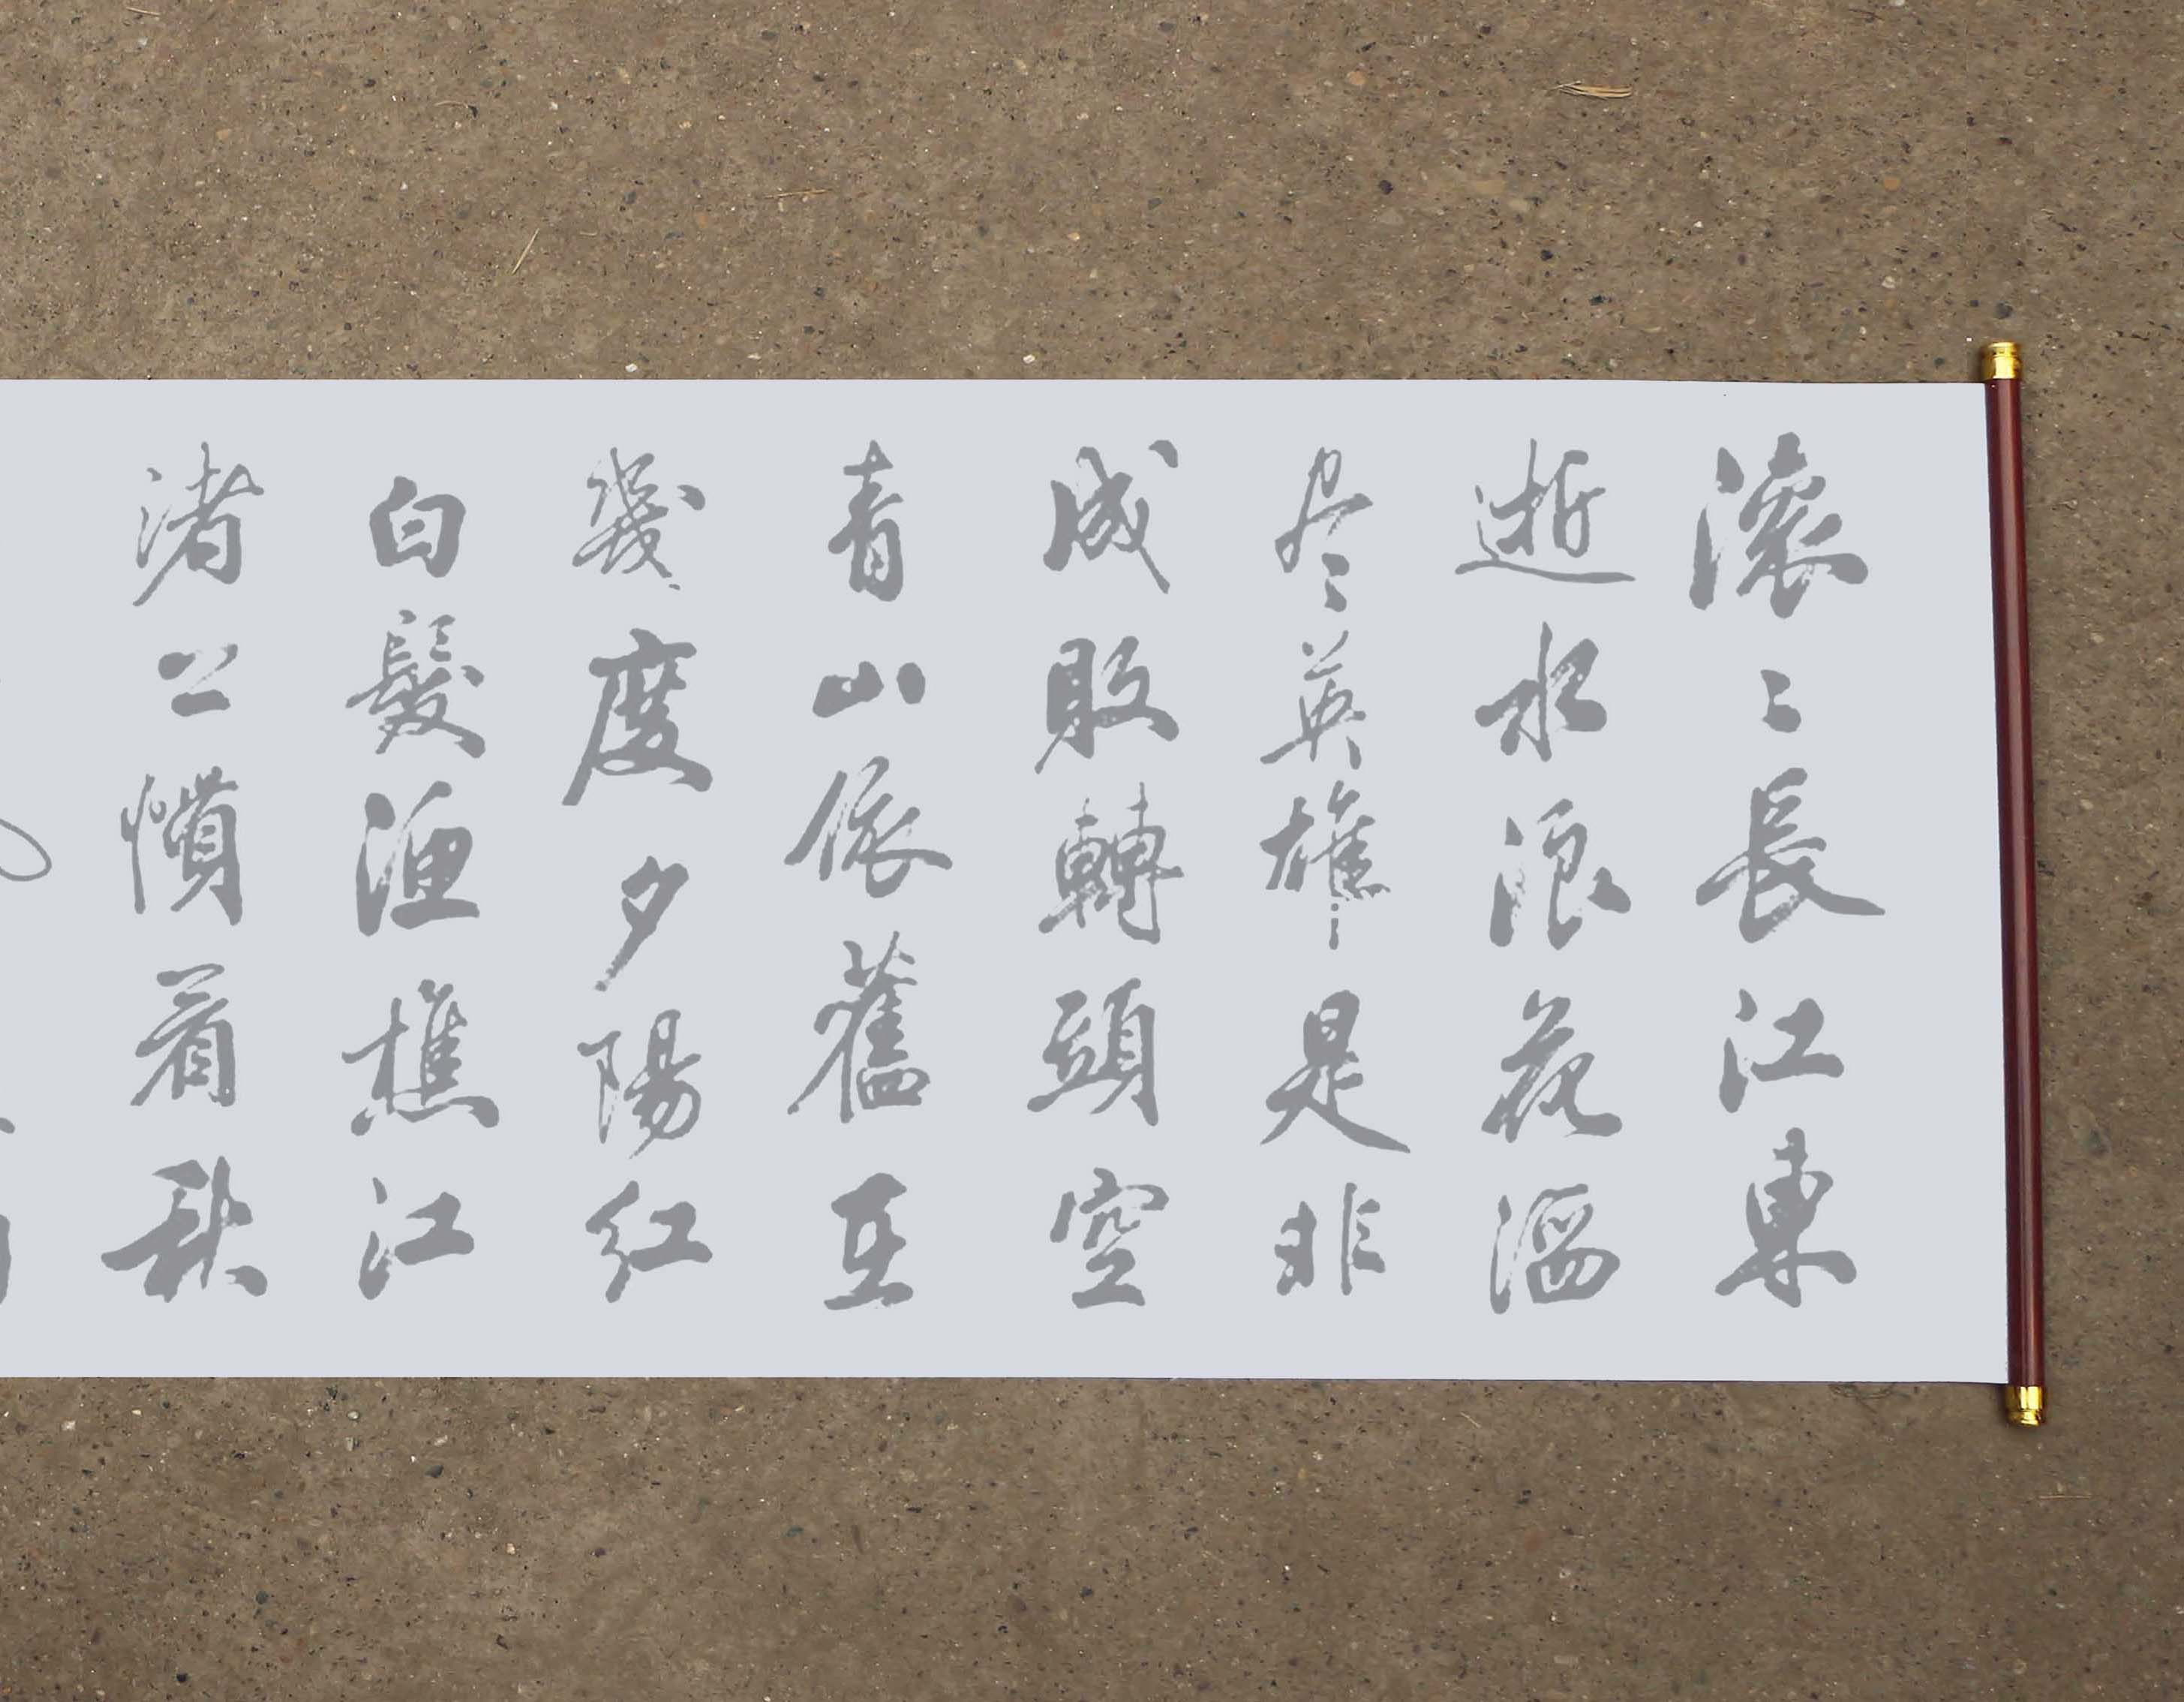 滾〻長江東
逝水浪花淘
尽英雄是非
成敗轉頭空
青山依舊在
幾度夕陽紅
白髮漁樵江
渚上慣看秋